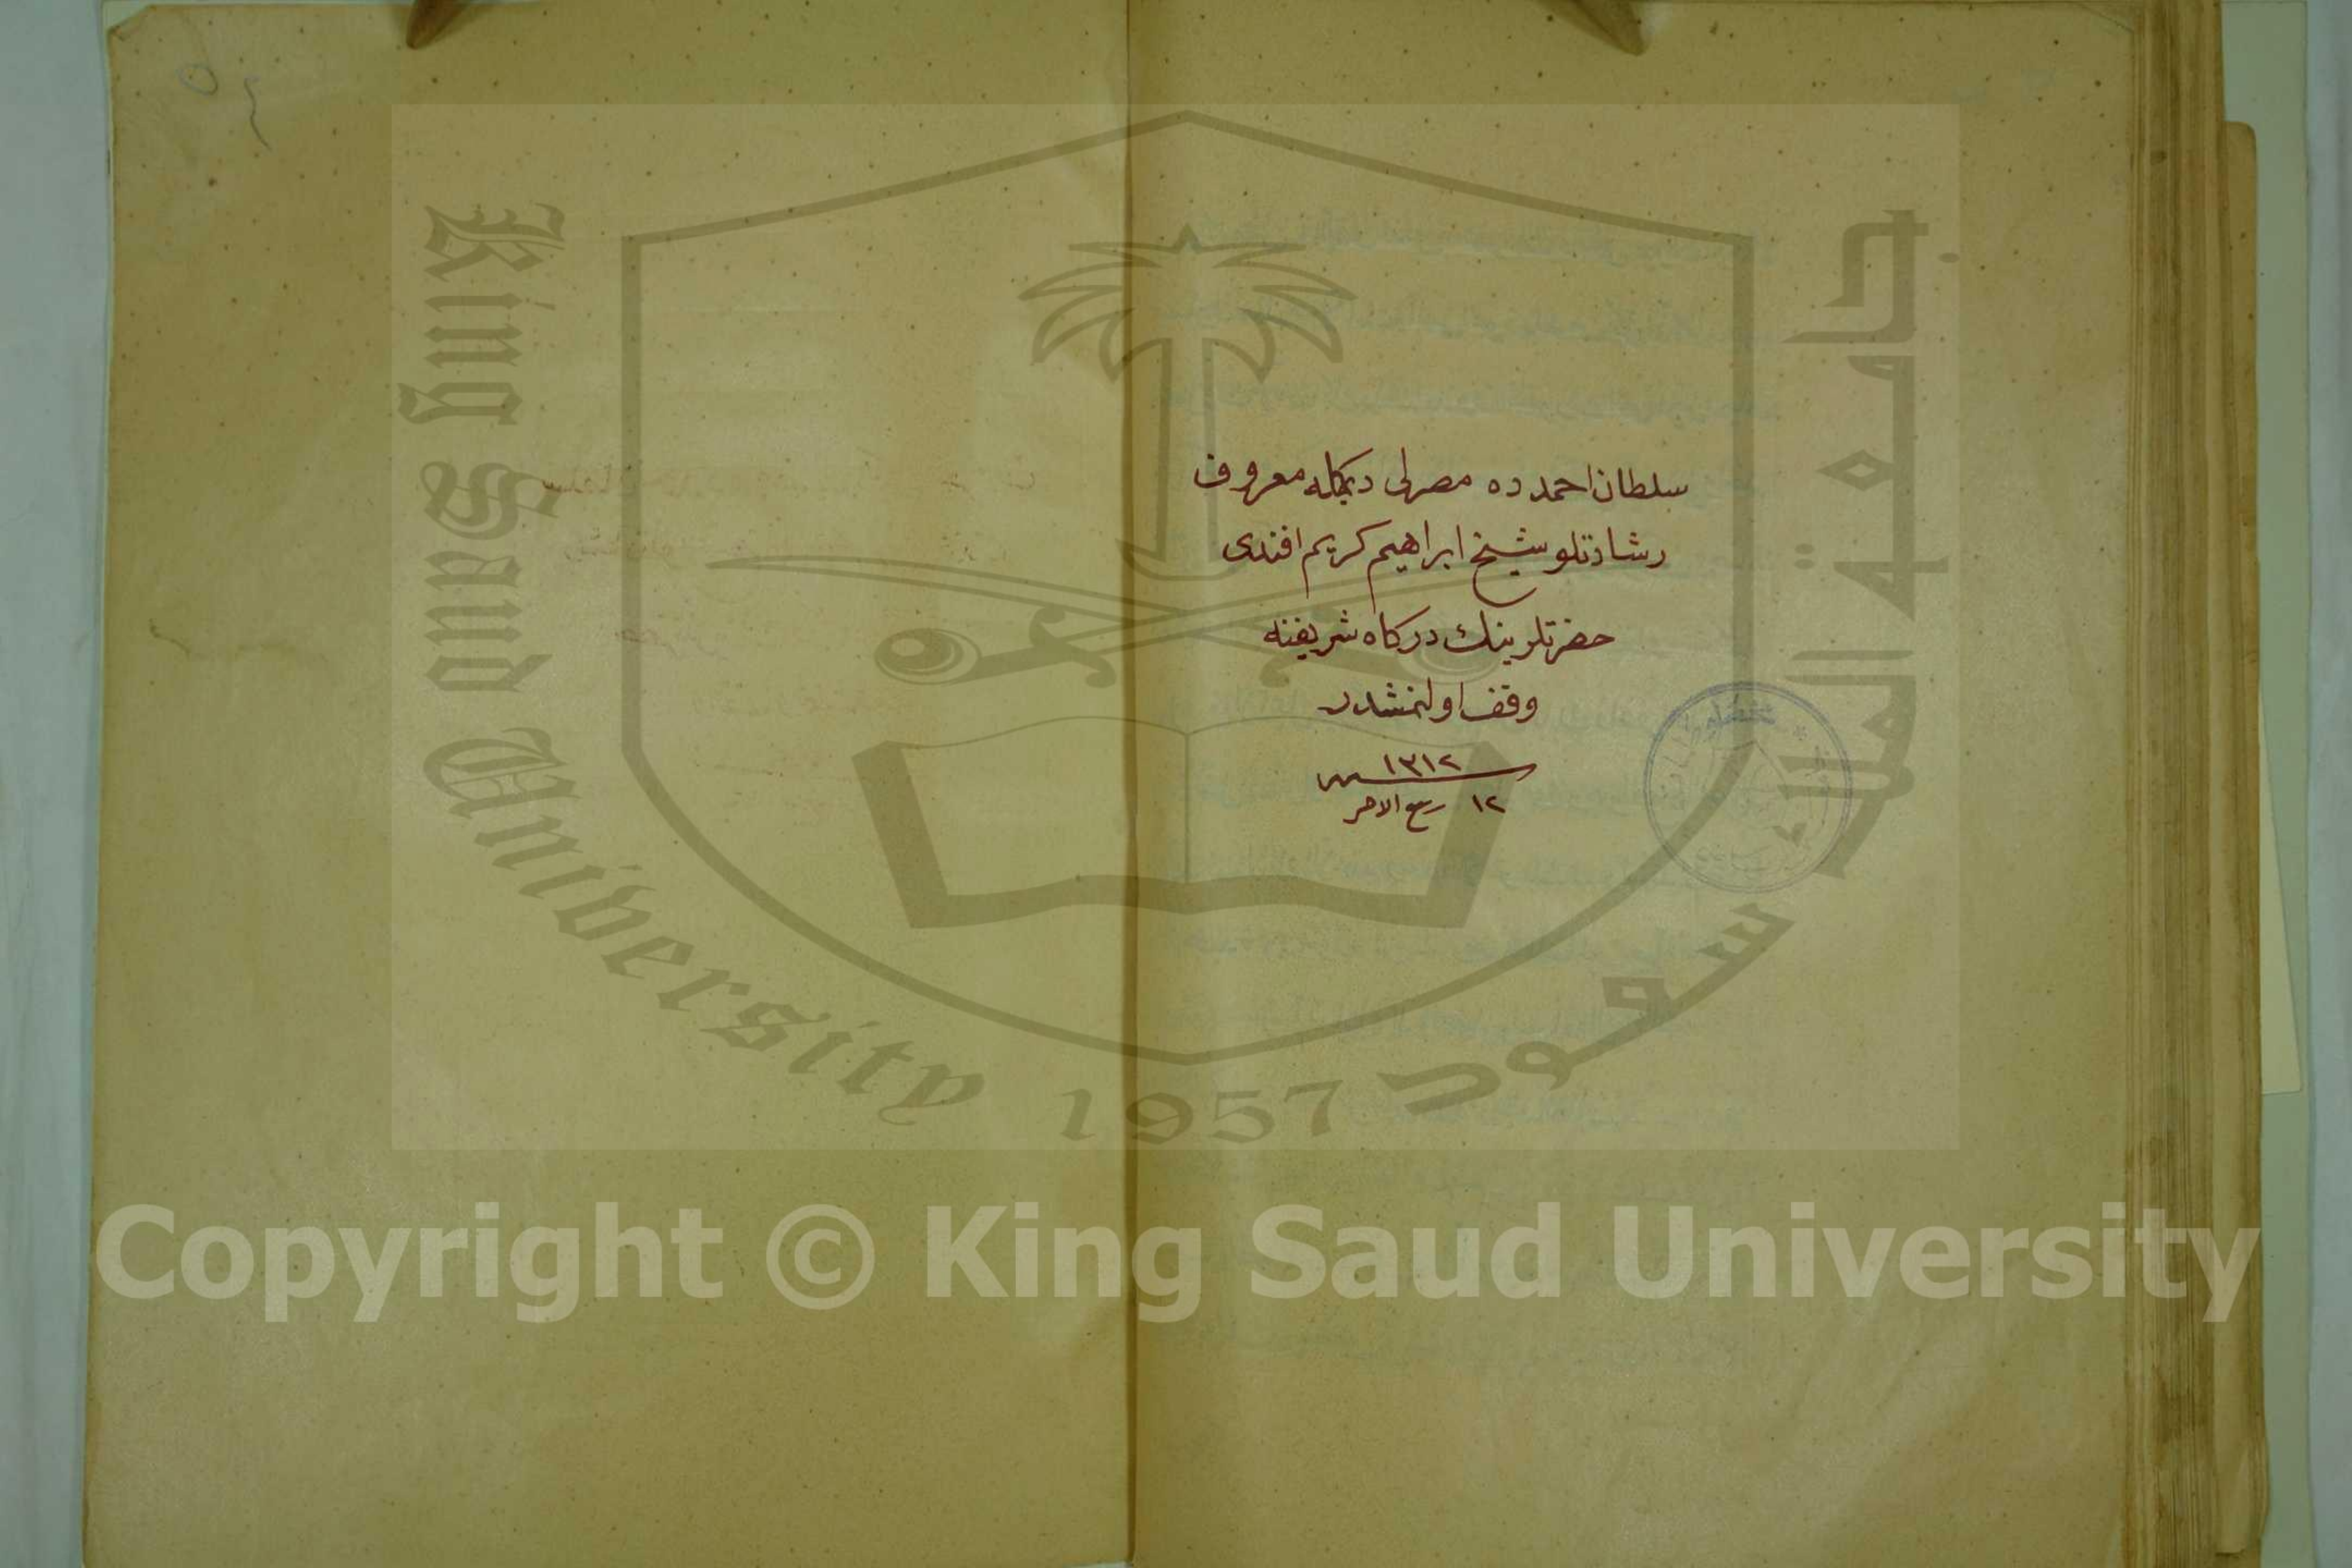 سلطان احمدده مصرلی دیمكله معروف
رشادتلو شيخ ابراهيم كريم افندى
حضرتلرينك دركاه شريفنه
وقف اولنمشدر
١٣١٢
١٢ ربيع الاخر
King Saud University 1957
جامعة الملك سعود
Copyright © King Saud University